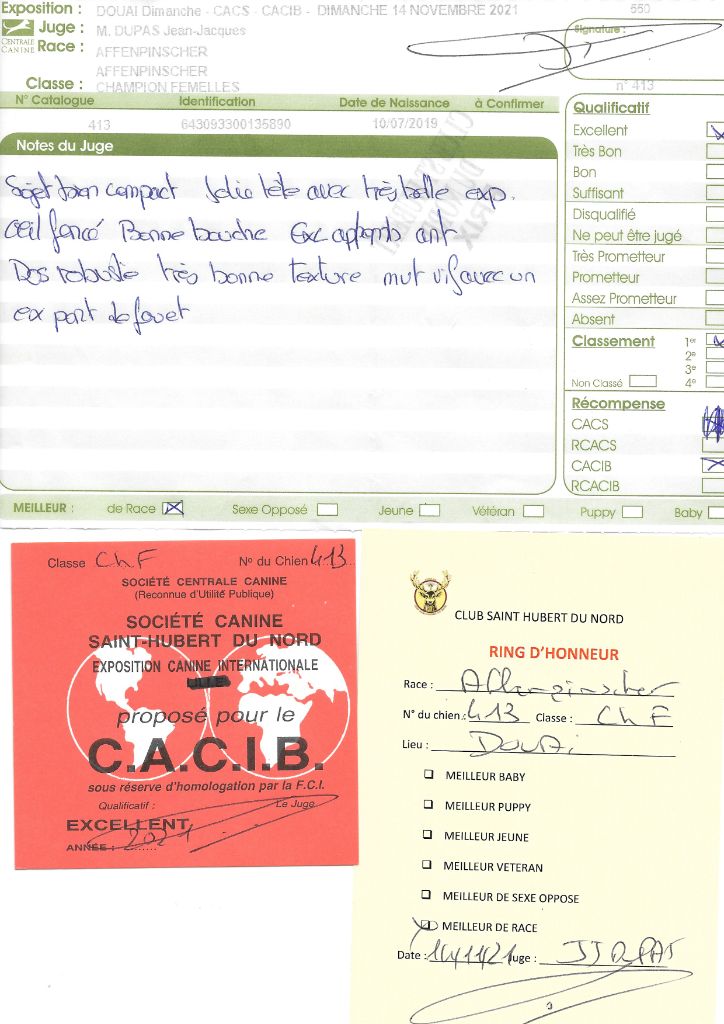 Exposition : DOUAI Dimanche - CACS - CACIB - DIMANCHE 14 NOVEMBRE 2021 550
CENTRALE CANINE
Juge : M. DUPAS Jean-Jacques Signature :
Race : AFFENPINSCHER
AFFENPINSCHER
Classe : CHAMPION FEMELLES n° 413
N° Catalogue Identification Date de Naissance à Confirmer
413 643093300135890 10/07/2019
Notes du Juge
Sujet bien compact Jolie tête avec très belle exp.
œil foncé Bonne bouche Exc aplombs ant
Dos robuste très bonne texture mvt vif avec un
ex port de fouet
Qualificatif
Excellent
Très Bon
Bon
Suffisant
Disqualifié
Ne peut être jugé
Très Prometteur
Prometteur
Assez Prometteur
Absent
Classement 1er
2e
3e
Non Classé 4e
Récompense
CACS
RCACS
CACIB
RCACIB
MEILLEUR : de Race Sexe Opposé Jeune Vétéran Puppy Baby
Classe Ch F N° du Chien 413
SOCIÉTÉ CENTRALE CANINE
(Reconnue d'Utilité Publique)
SOCIÉTÉ CANINE
SAINT-HUBERT DU NORD
EXPOSITION CANINE INTERNATIONALE
proposé pour le
C.A.C.I.B.
sous réserve d'homologation par la F.C.I.
Qualificatif : Le Juge
EXCELLENT
ANNÉE : 2021
CLUB SAINT HUBERT DU NORD
RING D'HONNEUR
Race : Affenpinscher
N° du chien : 413 Classe : Ch F
Lieu : DOUAi
MEILLEUR BABY
MEILLEUR PUPPY
MEILLEUR JEUNE
MEILLEUR VETERAN
MEILLEUR DE SEXE OPPOSE
MEILLEUR DE RACE
Date : 14/11/21 Juge : JJ DUPAS